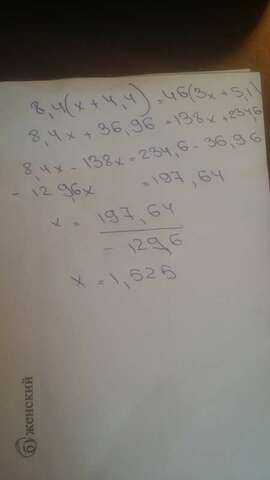 8,4(x+4,4)=46(3x+5,1)
8,4x+36,96=138x+234,6
8,4x-138x=234,6-36,96
-129,6x=197,64
x=197,64/-129,6
x=1,525
б) женский